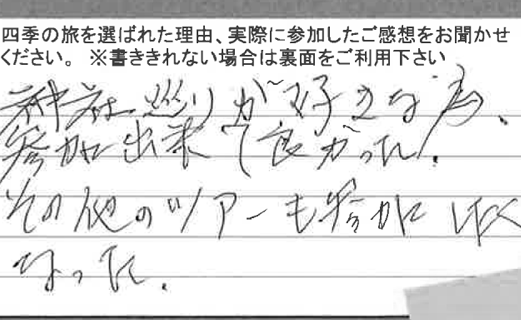 四季の旅を選ばれた理由、実際に参加したご感想をお聞かせ
ください。 ※書ききれない場合は裏面をご利用下さい
神社巡りが好きな為、
参加出来て良かった!
その他のツアーも参加したく
なった。